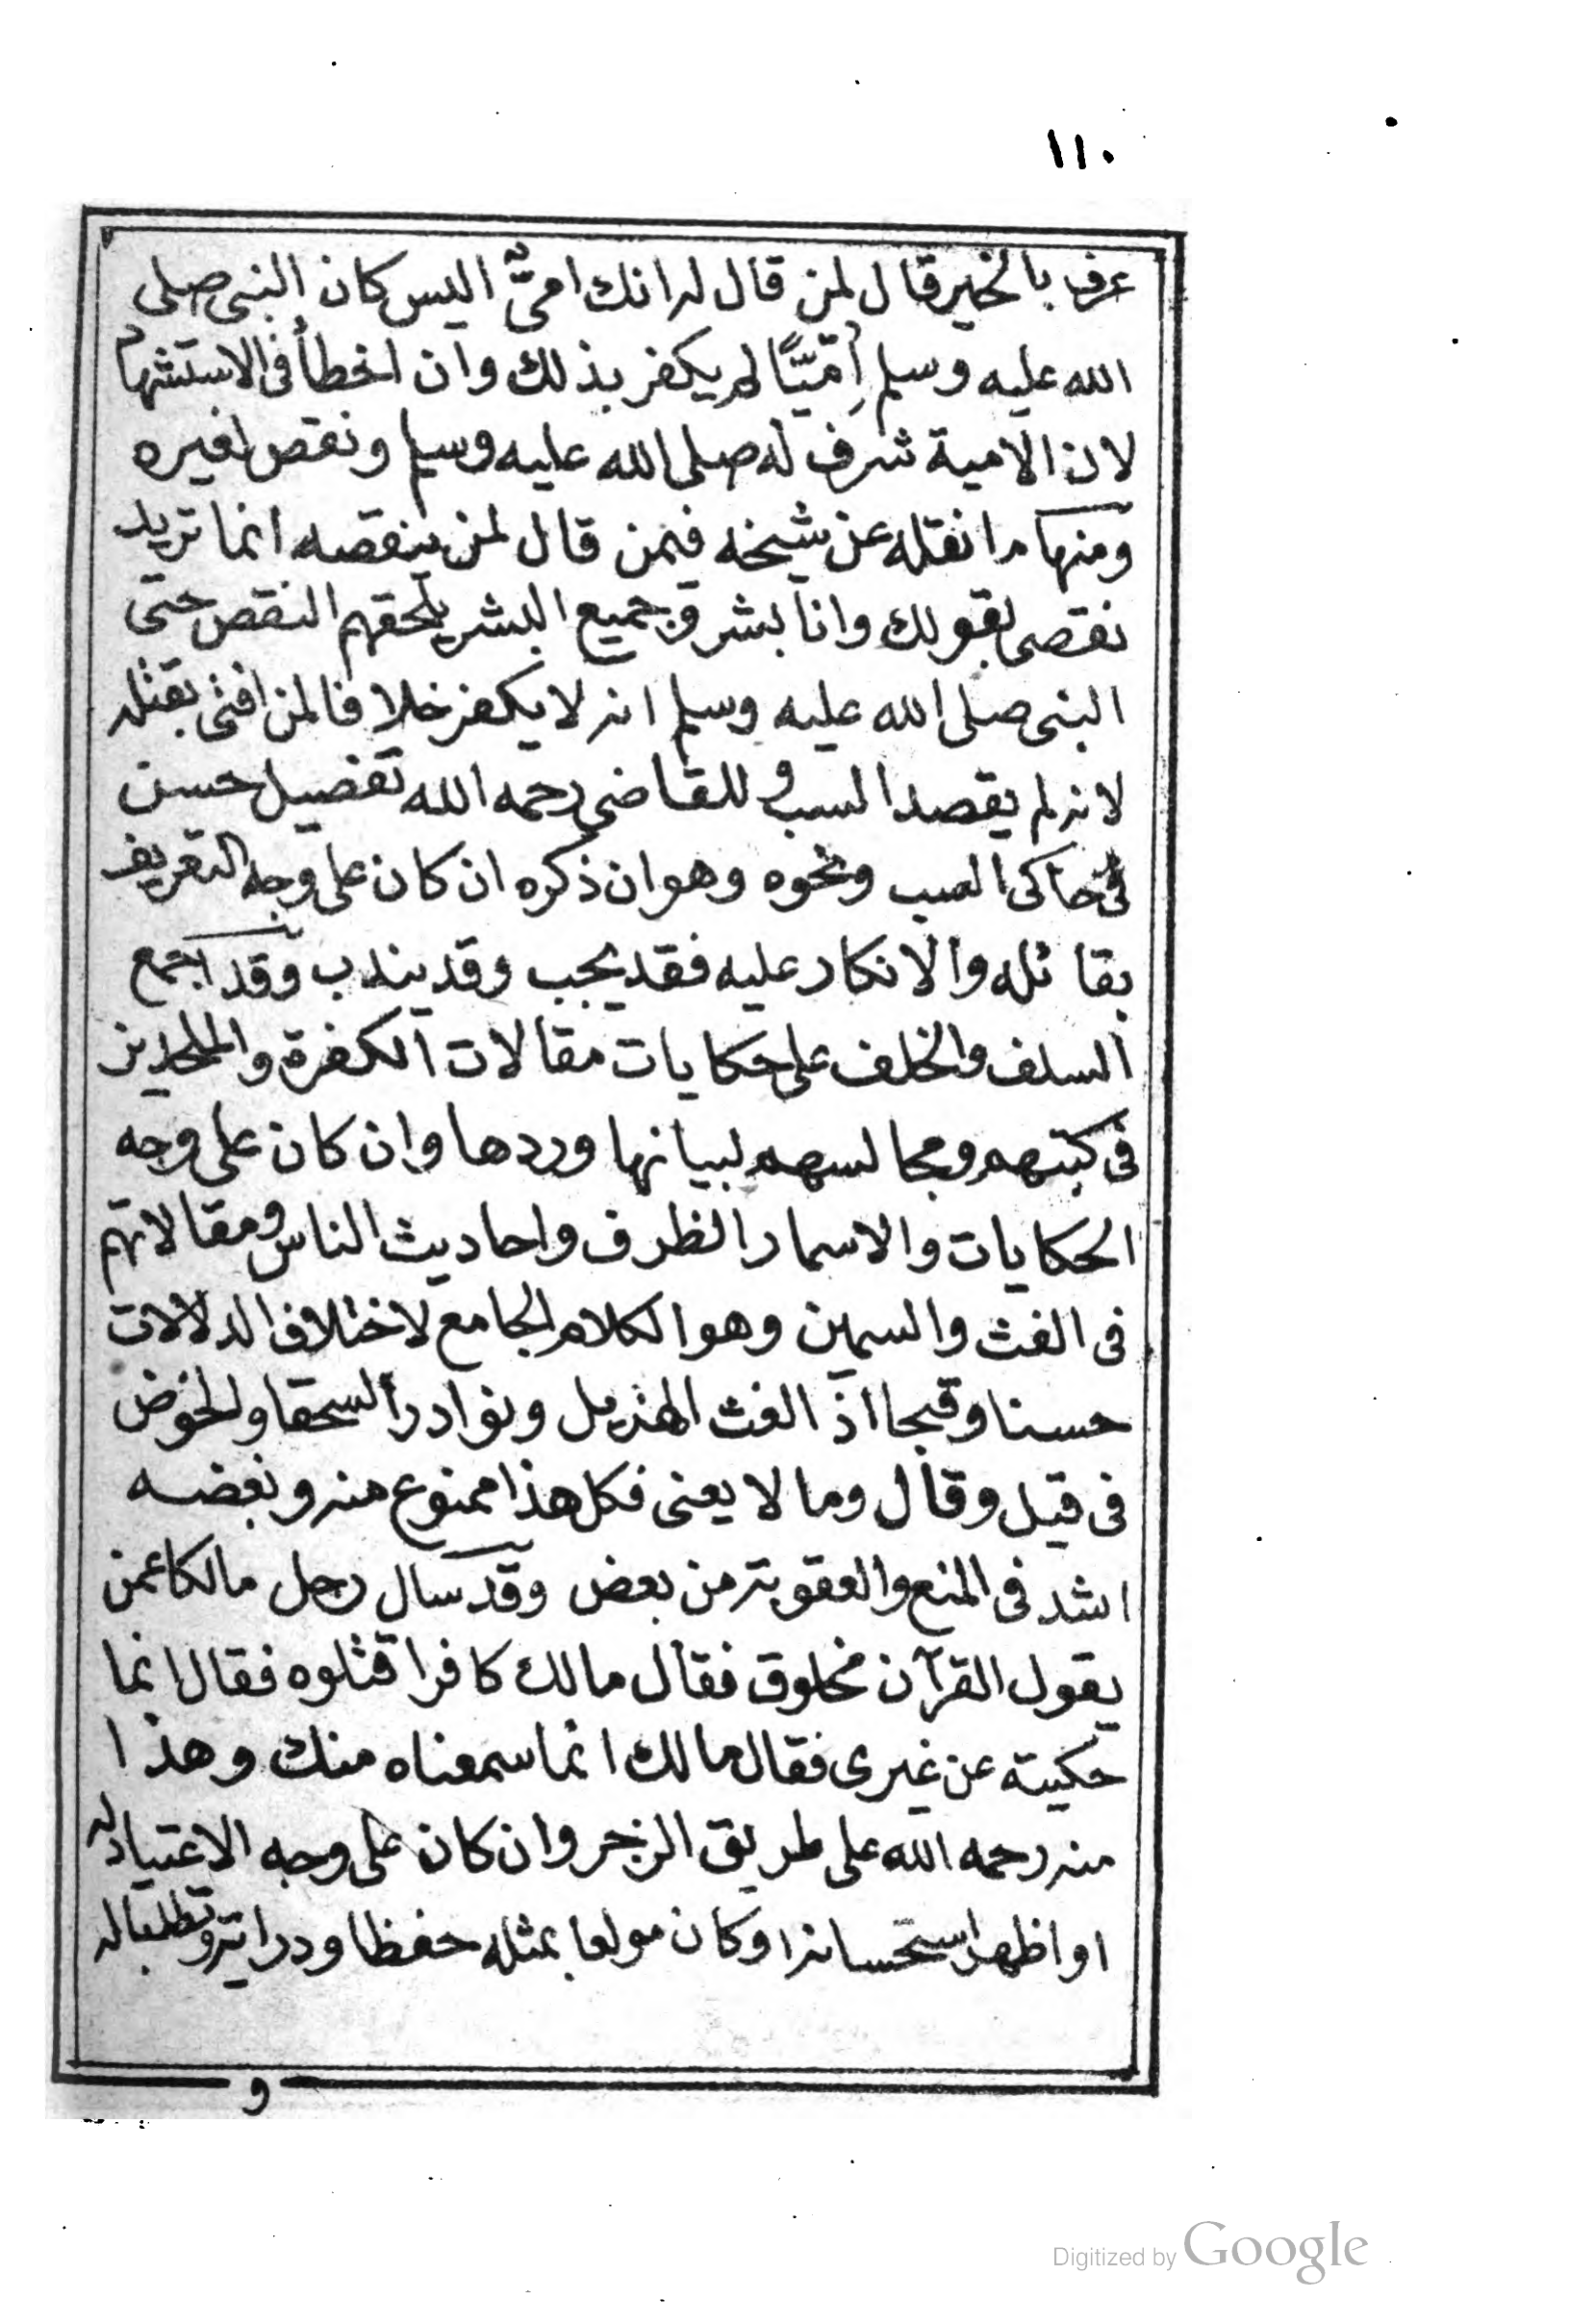 ١١٠
عرف بالخير قال لمن قال له انك امىّ اليس كان النبى صلى
الله عليه وسلم اُمّيًّا لم يكفر بذلك وان اخطأ فى الاستشهاد
لان الامية شرف له صلى الله عليه وسلم ونقص لغيره
ومنها ما نقله عن شيخه فيمن قال لمن ينقصه انما تريد
نقصى بقولك وانا بشر وجميع البشر يلحقهم النقص حتى
النبى صلى الله عليه وسلم انه لا يكفر خلافا لمن افتى بقتله
لانه لم يقصد السب وللقاضى رحمه الله تفصيل حسن
فى حاكى السب ونحوه وهو ان ذكره ان كان على وجه التعريف
بقائله والانكار عليه فقد يجب وقد يندب وقد اجمع
السلف والخلف على حكايات مقالات الكفرة والملحدين
فى كتبهم ومجالسهم لبيانها وردها وان كان على وجه
الحكايات والاسمار والظرف واحاديث الناس ومقالاتهم
فى الغث والسمين وهو الكلام الجامع لاختلاف الدلالات
حسنا وقبحا اذ الغث الهزيل ونوادر السخفا والخوض
فى قيل وقال وما لا يعنى فكل هذا ممنوع منه وبعضه
اشد فى المنع والعقوبة من بعض وقد سال رجل مالكا عمن
يقول القرآن مخلوق فقال مالك كافر اقتلوه فقال انما
حكيته عن غيرى فقال مالك انما سمعناه منك وهذا
منه رحمه الله على طريق الزجر وان كان على وجه الاعتياد له
او اظهر استحسانه او كان مولعا بمثله حفظا ودراية وتطلبا له
و
Digitized by Google